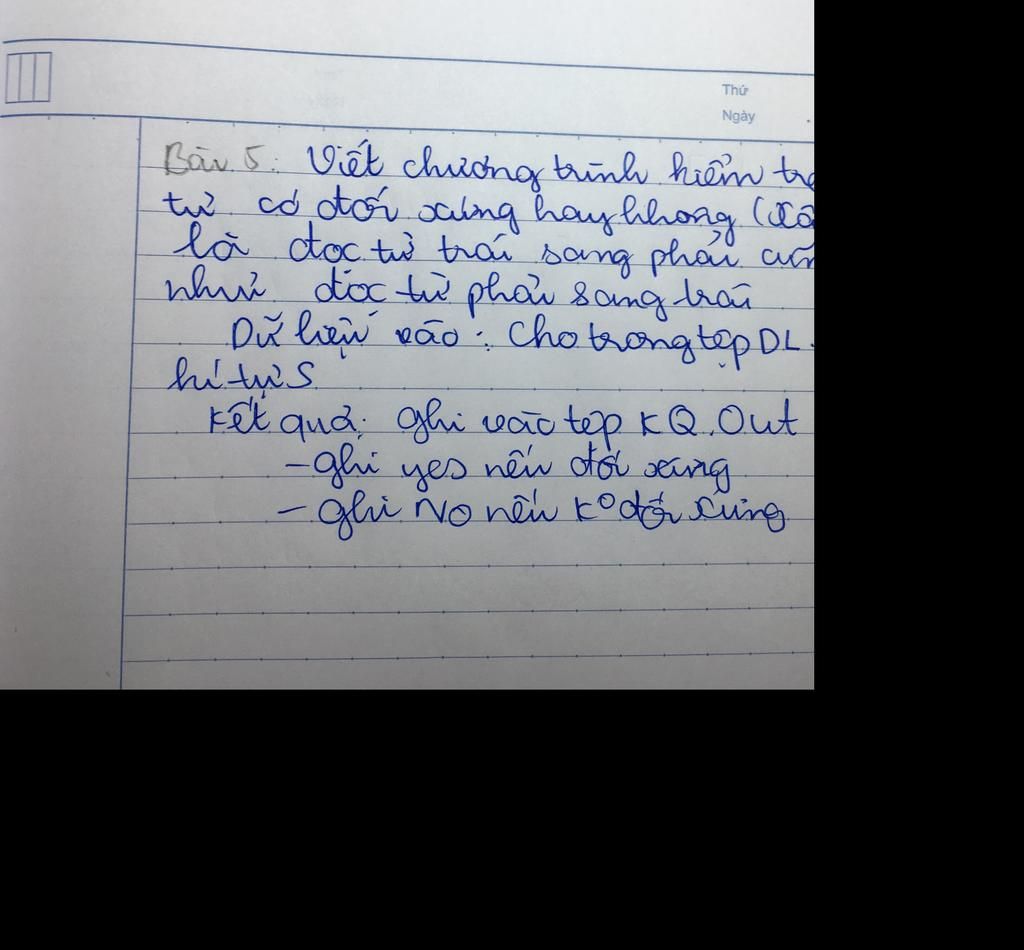 Thứ
Ngày
Bài 5: Viết chương trình kiểm
tự có đối xứng hay không
là đọc từ trái sang phải
như đọc từ phải sang trái
Dữ liệu vào: Cho trong tệp DL.
kí tự S
Kết quả: ghi vào tệp KQ.Out
- ghi yes nếu đối xứng
- ghi No nếu k° đối xứng